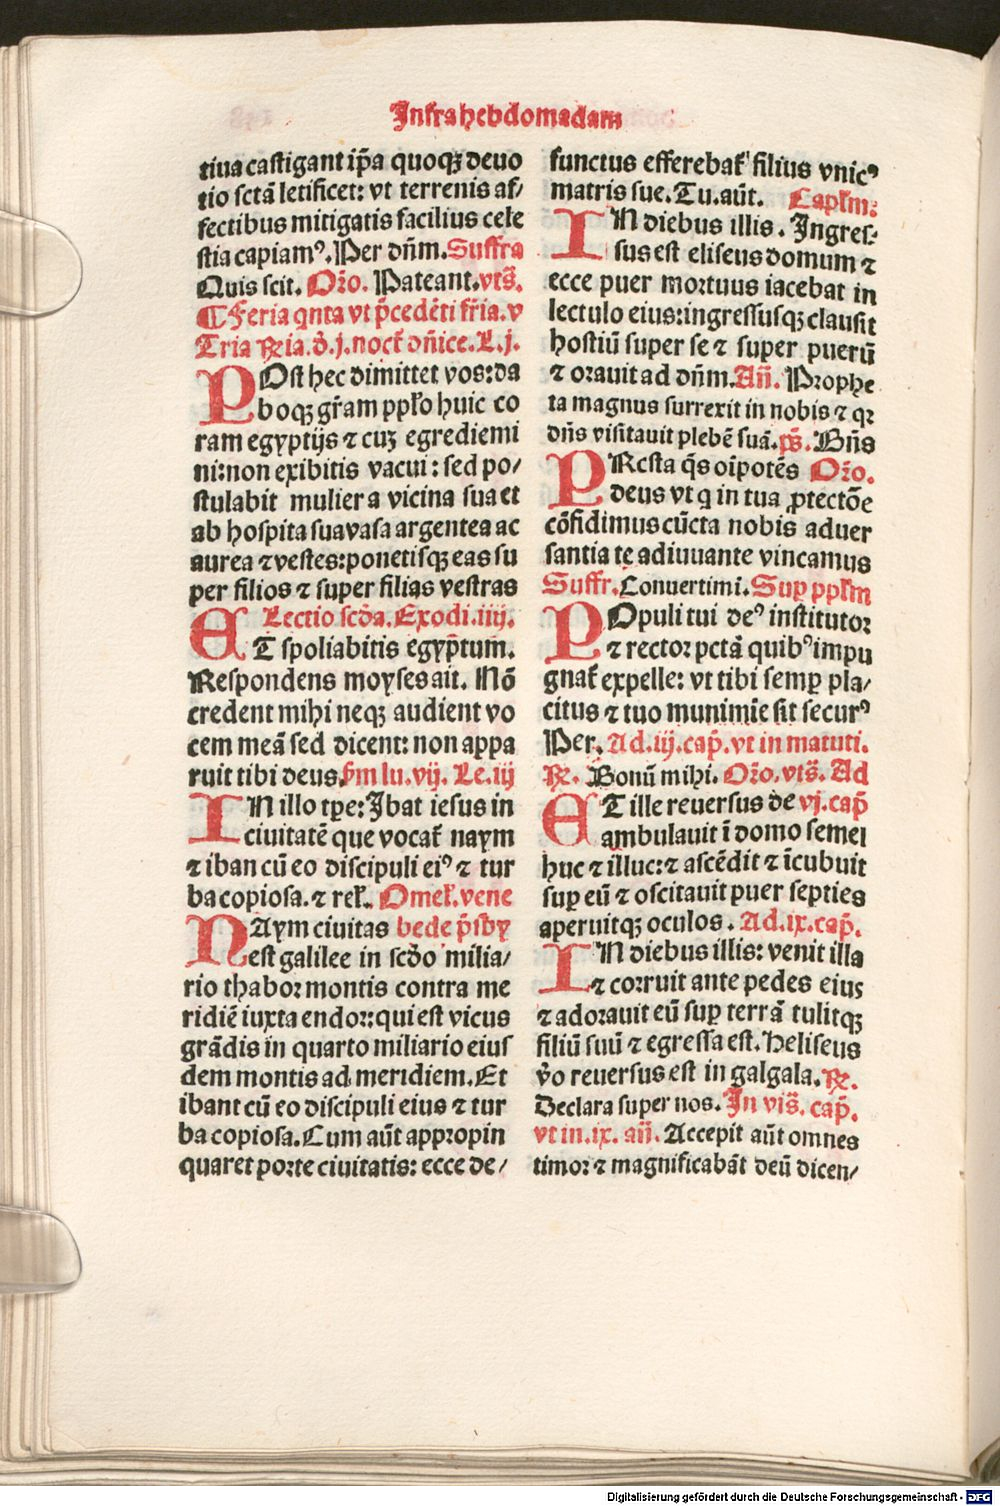 Infra hebdomadam
tiua castigant ip̄a quoqꝫ deuo
tio sctā letificet: vt terrenis af/
fectibus mitigatis facilius cele
stia capiamꝰ. Per dn̄m. Suffra
Quis scit. Or̄o. Pateant. vts̄.
¶ Feria qnta vt p̄cedēti fr̄ia. v
Tria ℞ia. d̄. j. noct̄ dn̄ice. L. j.
POst hec dimittet vos: da
boqꝫ gr̄am pplo huic co
ram egyptijs ⁊ cuꝫ egrediemi
ni: non exibitis vacui: sed po/
stulabit mulier a vicina sua et
ab hospita sua vasa argentea ac
aurea ⁊ vestes: ponetisqꝫ eas su
per filios ⁊ super filias vestras
Lectio scd̄a. Exodi. iiij.
ET spoliabitis egyp̄tum.
Respondens moyses ait. Nō
credent mihi neqꝫ audient vo
cem meā sed dicent: non appa
ruit tibi deus. sm lu. vij. Le. iij
IN illo tꝑe: Ibat iesus in
ciuitatē que vocat̄ naym
⁊ iban cū eo discipuli eiꝰ ⁊ tur
ba copiosa. ⁊ rel. Omel. vene
NAym ciuitas bede p̄sby
est galilee in scd̄o milia/
rio thabor montis contra me
ridiē iuxta endor: qui est vicus
grādis in quarto miliario eius
dem montis ad meridiem. Et
ibant cū eo discipuli eius ⁊ tur
ba copiosa. Cum aūt appropin
quaret porte ciuitatis: ecce de/
functus efferebat̄ filius vnicꝰ
matris sue. Tu. aūt. Caplm:
IN diebus illis. Ingres-
sus est eliseus domum ⁊
ecce puer mortuus iacebat in
lectulo eius: ingressusqꝫ clausit
hostiū super se ⁊ super puerū
⁊ orauit ad dn̄m. An̄. Prophe
ta magnus surrexit in nobis ⁊ qꝛ
dn̄s visitauit plebē suā. ps̄. Bn̄s
PResta q̄s oīpotēs Or̄o.
deus vt q in tua ꝓtectōe
cōfidimus cūcta nobis aduer
santia te adiuuante vincamus
Suffr. Conuertimi. Suꝑ pplm
POpuli tui deꝰ institutor
⁊ rector pctā quibꝰ impu
gnat̄ expelle: vt tibi semꝑ pla/
citus ⁊ tuo munimie sit securꝰ
Per. Ad. iij. cap̄. vt in matuti.
℞. Bonū mihi. Or̄o. vts̄. Ad
ET ille reuersus de vj. cap̄
ambulauit ī domo semel
huc ⁊ illuc: ⁊ ascēdit ⁊ īcubuit
suꝑ eū ⁊ oscitauit puer septies
aperuitqꝫ oculos. Ad. ix. cap̄.
IN diebus illis: venit illa
⁊ corruit ante pedes eius
⁊ adorauit eū suꝑ terrā tulitqꝫ
filiū suū ⁊ egressa est. Heliseus
v̄o reuersus est in galgala. ℞.
Declara super nos. In vis̄. cap̄.
vt in. ix. an̄. Accepit aūt omnes
timor ⁊ magnificabāt deū dicen/
Digitalisierung gefördert durch die Deutsche Forschungsgemeinschaft - DFG